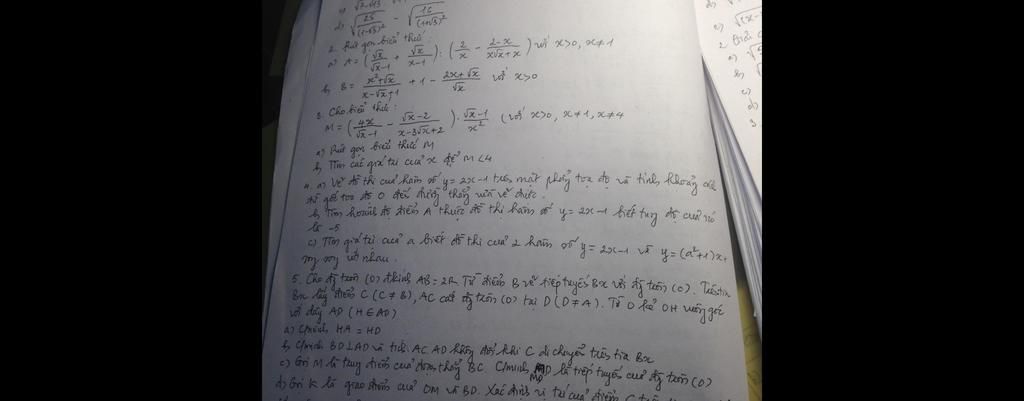 d) √(25/(1-√3)²) - √(16/(1+√3)²)
2. Rút gọn biểu thức:
a) A = (√x/(√x-1) + √x/(x-1)) : (2/x - (2-x)/(x√x+x)) với x>0, x≠1
b) B = (x²+√x)/(x-√x+1) + 1 - (2x+√x)/√x với x>0
3. Cho biểu thức:
M = (4x/(√x-1) - (√x-2)/(x-3√x+2)) · (√x-1)/x² (với x>0, x≠1, x≠4)
a) Rút gọn biểu thức M
b) Tìm các giá trị của x để M<4
4. a) Vẽ đồ thị của hàm số y=2x-1 trên mặt phẳng toạ độ và tính khoảng cách
từ gốc toạ độ O đến đường thẳng vừa vẽ được.
b) Tìm hoành độ điểm A thuộc đồ thị hàm số y=2x-1 biết tung độ của nó
là -5
c) Tìm giá trị của a biết đồ thị của 2 hàm số y=2x-1 và y=(a²+1)x+
song song với nhau.
5. Cho đg tròn (O) đkính AB=2R. Từ điểm B vẽ tiếp tuyến Bx với đg tròn (O). Trên tia
Bx lấy điểm C (C≠B), AC cắt đg tròn (O) tại D (D≠A). Từ O kẻ OH vuông góc
với dây AD (H∈AD)
a) C/minh HA=HD
b) C/minh BD⊥AD và tích AC.AD không đổi khi C di chuyển trên tia Bx
c) Gọi M là trung điểm của đoạn thẳng BC. C/minh MD là tiếp tuyến của đg tròn (O)
d) Gọi K là giao điểm của OM và BD. Xác định vị trí của điểm C trên
√(x-
2. Biểu
a)
b)
c)
d)
3.